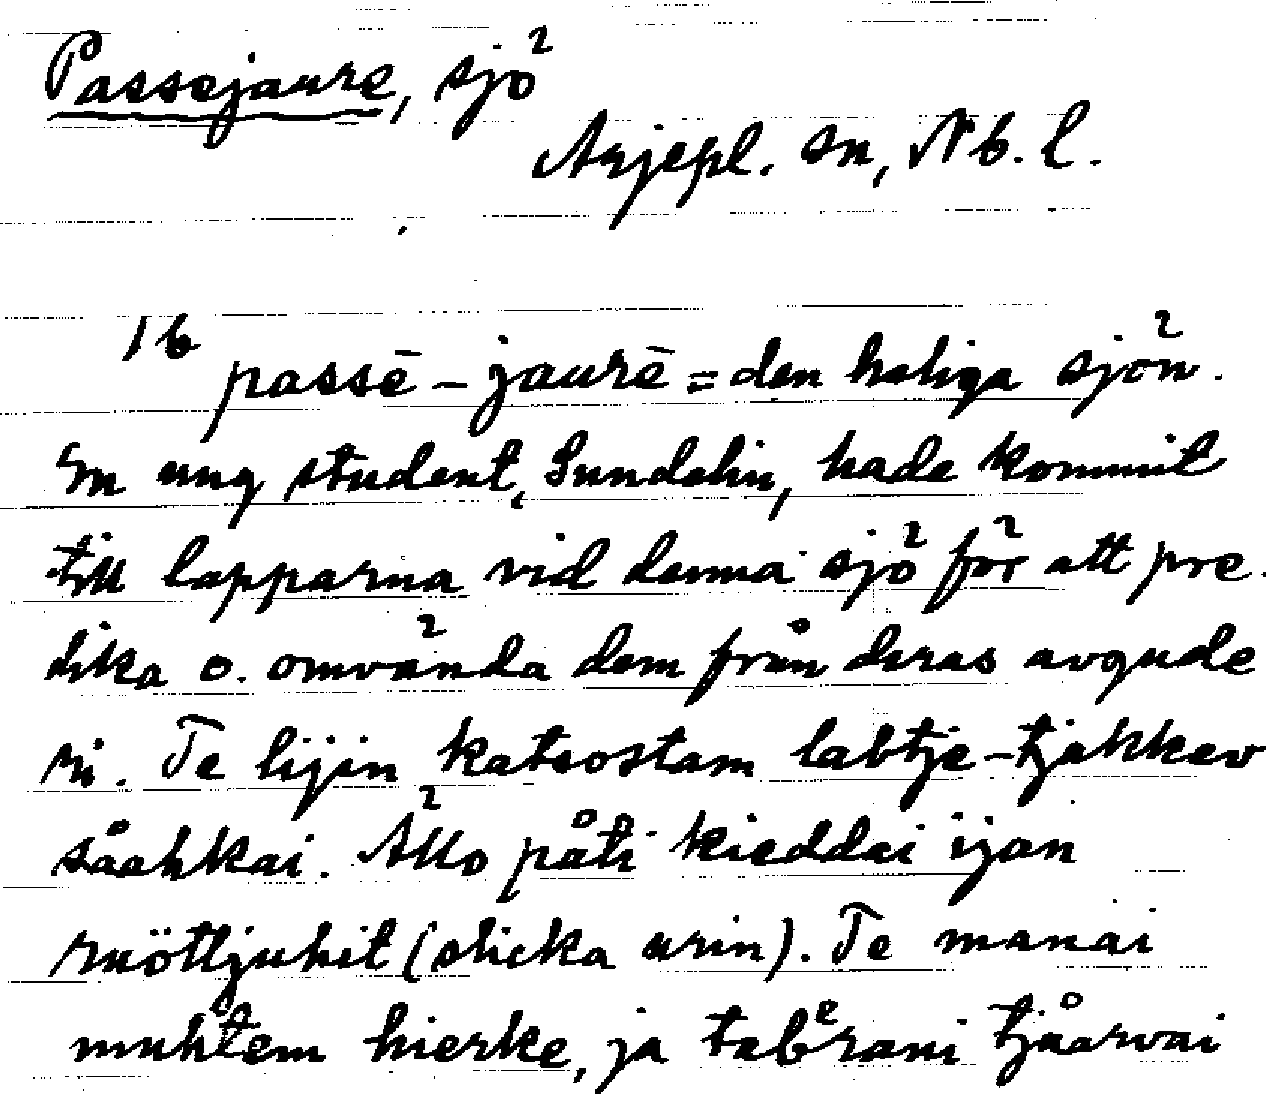 Passejaure, sjö
Arjepl. sn, Nb. l.
16 passē – jaurē = den heliga sjön.
En ung student, Sundelin, hade kommit
till lapparna vid denna sjö för att pre-
dika o. omvända dem från deras avgude
ri. Te lijin katsostam labtje-tjåkkev
sååhkai. Ällo påti kieddei ijan
kuöttjuhit (slicka urin). Te manai
muhtem hierke, ja taberani tjåarvai